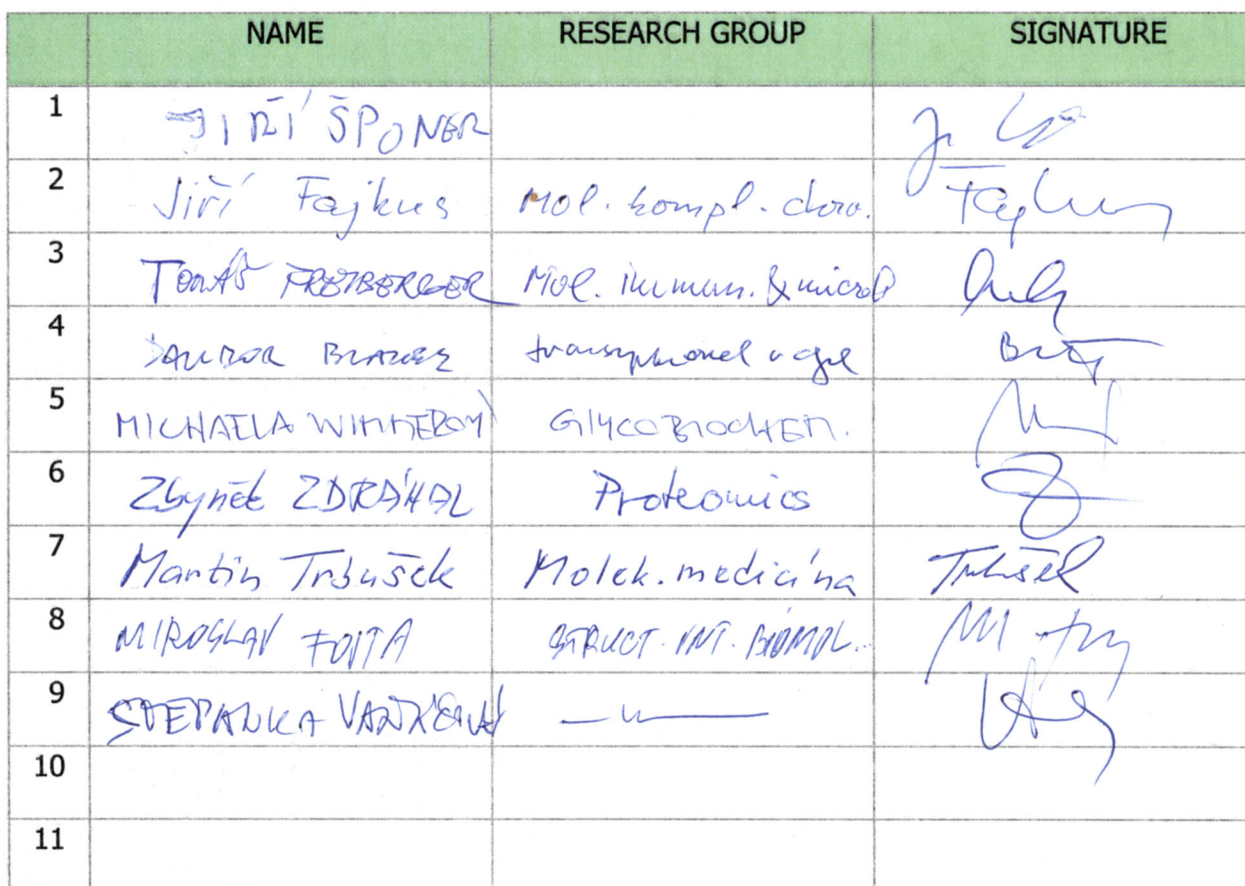 NAME RESEARCH GROUP SIGNATURE
1 JIŘÍ ŠPONER
2 Jiří Fajkus Mol. kompl. chro. Fajkus
3 TOMÁŠ FREIBERGER Mol. immun. & microb
4 DALIBOR BLAZEK
5 MICHAELA WIMMEROVÁ GlYCOBIOCHEM.
6 Zbyněk ZDRÁHAL Proteomics
7 Martin Trbušek Molek. medicína Trbušek
8 MIROSLAV FOJTA STRUCT. INT. BIOMOL.
9 STEPANKA VAŇKOVÁ
10
11